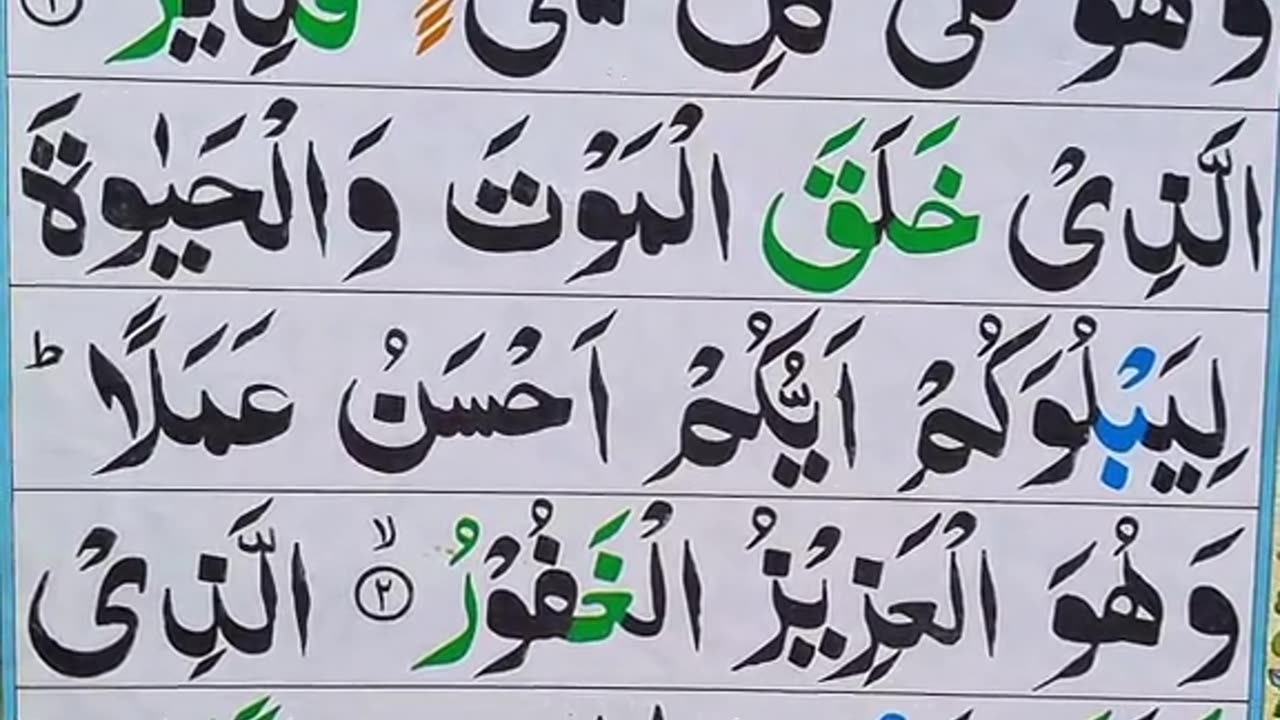 وَهُوَ عَلٰى كُلِّ شَیْءٍ قَدِیْرُ ۙ﴿۱﴾
الَّذِیْ خَلَقَ الْمَوْتَ وَالْحَیٰوةَ
لِیَبْلُوَكُمْ اَیُّكُمْ اَحْسَنُ عَمَلًا ؕ
وَهُوَ الْعَزِیْزُ الْغَفُوْرُ ۙ﴿۲﴾ الَّذِیْ